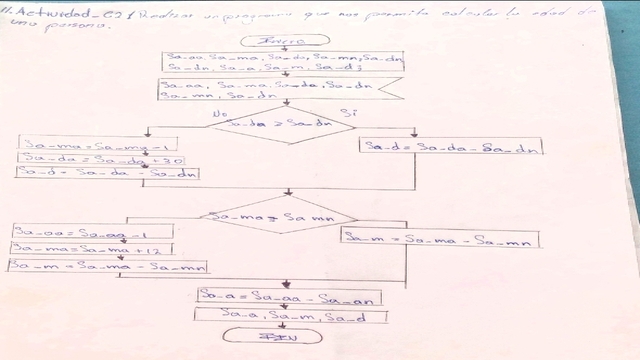 11. Actividad_C21 Realizar un programa que nos permita calcular la edad de
una persona.
Inicio
Sa_aa, Sa_ma, Sa_da, Sa_mn, Sa_dn,
Sa_dn, Sa_a, Sa_m, Sa_d;
Sa_aa, Sa_ma, Sa_da, Sa_dn
Sa_mn, Sa_dn
No
Sa_da ≥ Sa_dn
Si
Sa_ma = Sa_ma - 1
Sa_da = Sa_da + 30
Sa_d = Sa_da - Sa_dn
Sa_d = Sa_da - Sa_dn
Sa_ma ≥ Sa mn
Sa_aa = Sa_aa - 1
Sa_ma = Sa_ma + 12
Sa_m = Sa_ma - Sa_mn
Sa_m = Sa_ma - Sa_mn
Sa_a = Sa_aa - Sa_an
Sa_a, Sa_m, Sa_d
FIN